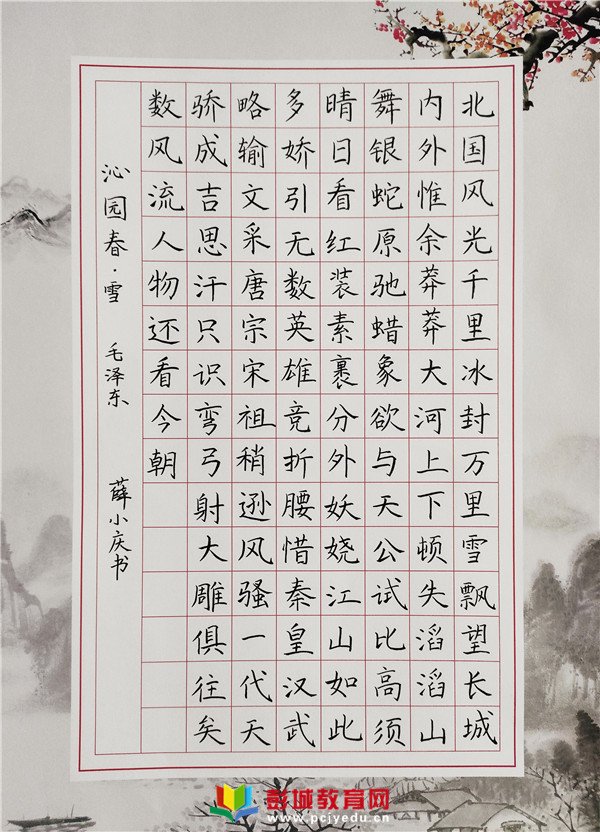 北国风光千里冰封万里雪飘望长城
内外惟余莽莽大河上下顿失滔滔山
舞银蛇原驰蜡象欲与天公试比高须
晴日看红装素裹分外妖娆江山如此
多娇引无数英雄竞折腰惜秦皇汉武
略输文采唐宗宋祖稍逊风骚一代天
骄成吉思汗只识弯弓射大雕俱往矣
数风流人物还看今朝
沁园春·雪 毛泽东 薛小庆书
彭城教育网
www.pcjyedu.cn